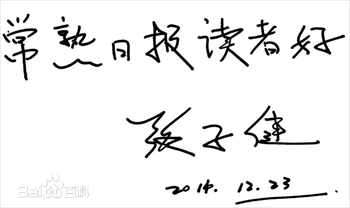 常熟日报读者好
张子健
2014.12.23
Baidu百科